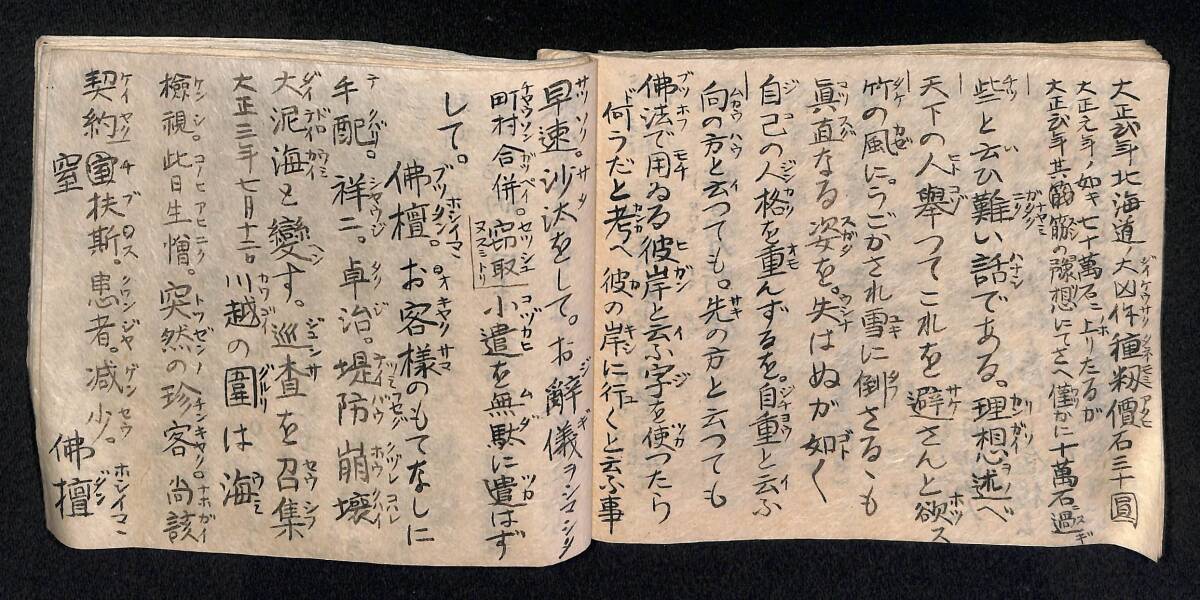 大正弐年北海道大凶作種籾價石三十圓
大正元年ノ如キ七十萬石ニ上リたるが
大正弐年其筋の豫想にてさへ僅かに十萬石過
些と云ひ難い話である。理想述べ
天下の人舉つてこれを避さんと欲ス
竹の風に。うごかされ雪に倒さるゝも
眞直なる姿を。失はぬが如く
自己の人格を重んずるを。自重と云ふ
向の方と云つても。先の方と云つても
佛法で用ゐる彼岸と云ふ字を使つたら
何うだと考へ彼の岸に行くと云ふ事
早速沙汰をして。お辭儀ヲシマシタ
町村合併。窃取小遣を無駄に遣はず
して。佛檀。お客様のもてなしに
手配。祥二。卓治。堤防崩壊
大泥海と變す。巡査を召集
大正三年七月十二日川越の圍は海
檢視。此日生憎。突然の珍客尚該
契約窒扶斯。患者。減少。佛檀
窒